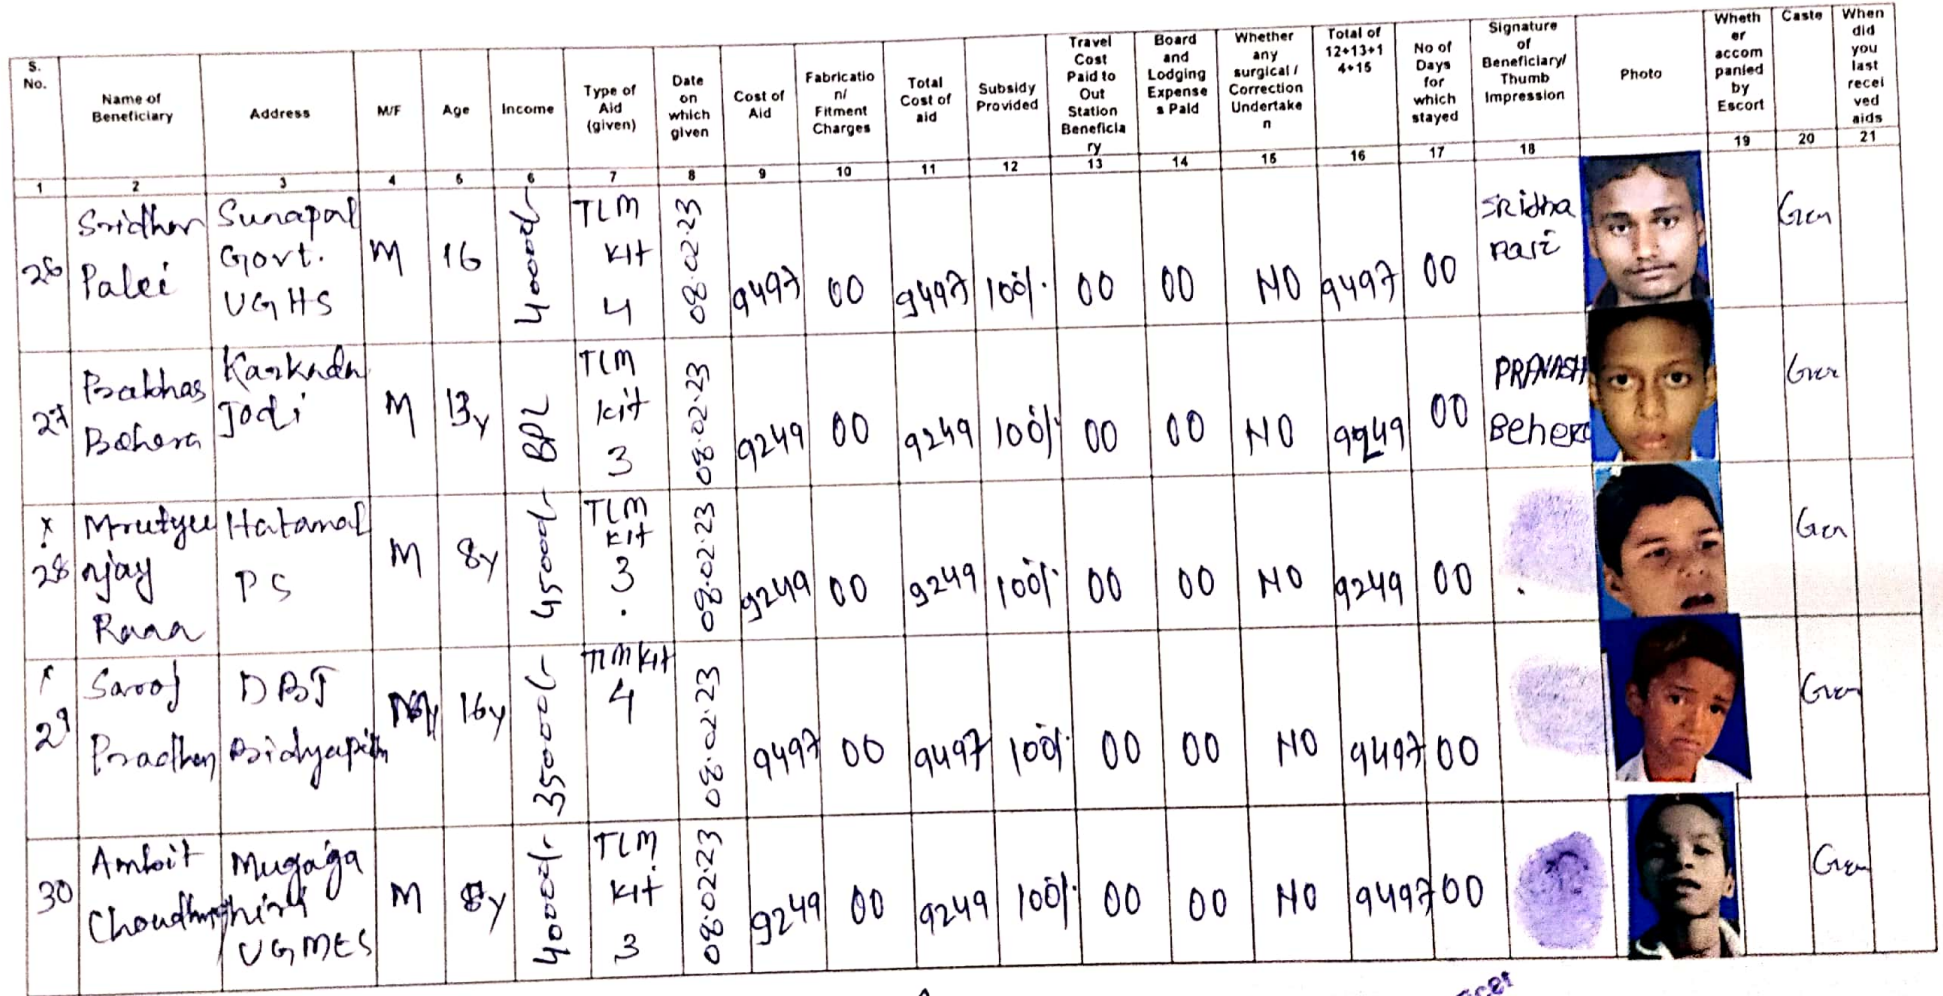 S. No.
Name of Beneficiary
Address
M/F
Age
Income
Type of Aid (given)
Date on which given
Cost of Aid
Fabricatio n/ Fitment Charges
Total Cost of aid
Subsidy Provided
Travel Cost Paid to Out Station Beneficia ry
Board and Lodging Expense s Paid
Whether any surgical / Correction Undertake n
Total of 12+13+1 4+15
No of Days for which stayed
Signature of Beneficiary/ Thumb Impression
Photo
Wheth er accom panied by Escort
Caste
When did you last recei ved aids
1 2 3 4 5 6 7 8 9 10 11 12 13 14 15 16 17 18 19 20 21
26 Sridhar Palei Sunapal Govt. UGHS M 16 40000/- TLM Kit 4 08.02.23 9497 00 9497 100%. 00 00 NO 9497 00 Gen
27 Prabhas Behera Karkada Jodi M 13y BPL TLM kit 3 08.02.23 9249 00 9249 100% 00 00 NO 9249 00 PRAVASH Behera Gen
28 Mrutyu njay Rana Hatamal PS M 8y 45000/- TLM Kit 3 08.02.23 9249 00 9249 100% 00 00 NO 9249 00 Gen
29 Saroj Pradhan DBJ Bidyapith 16y 35000/- TLM Kit 4 08.02.23 9497 00 9497 100% 00 00 NO 9497 00 Gen
30 Ambit Choudhury UGMES M 8y 40000/- TLM Kit 3 08.02.23 9249 00 9249 100% 00 00 NO 9497 00 Gen